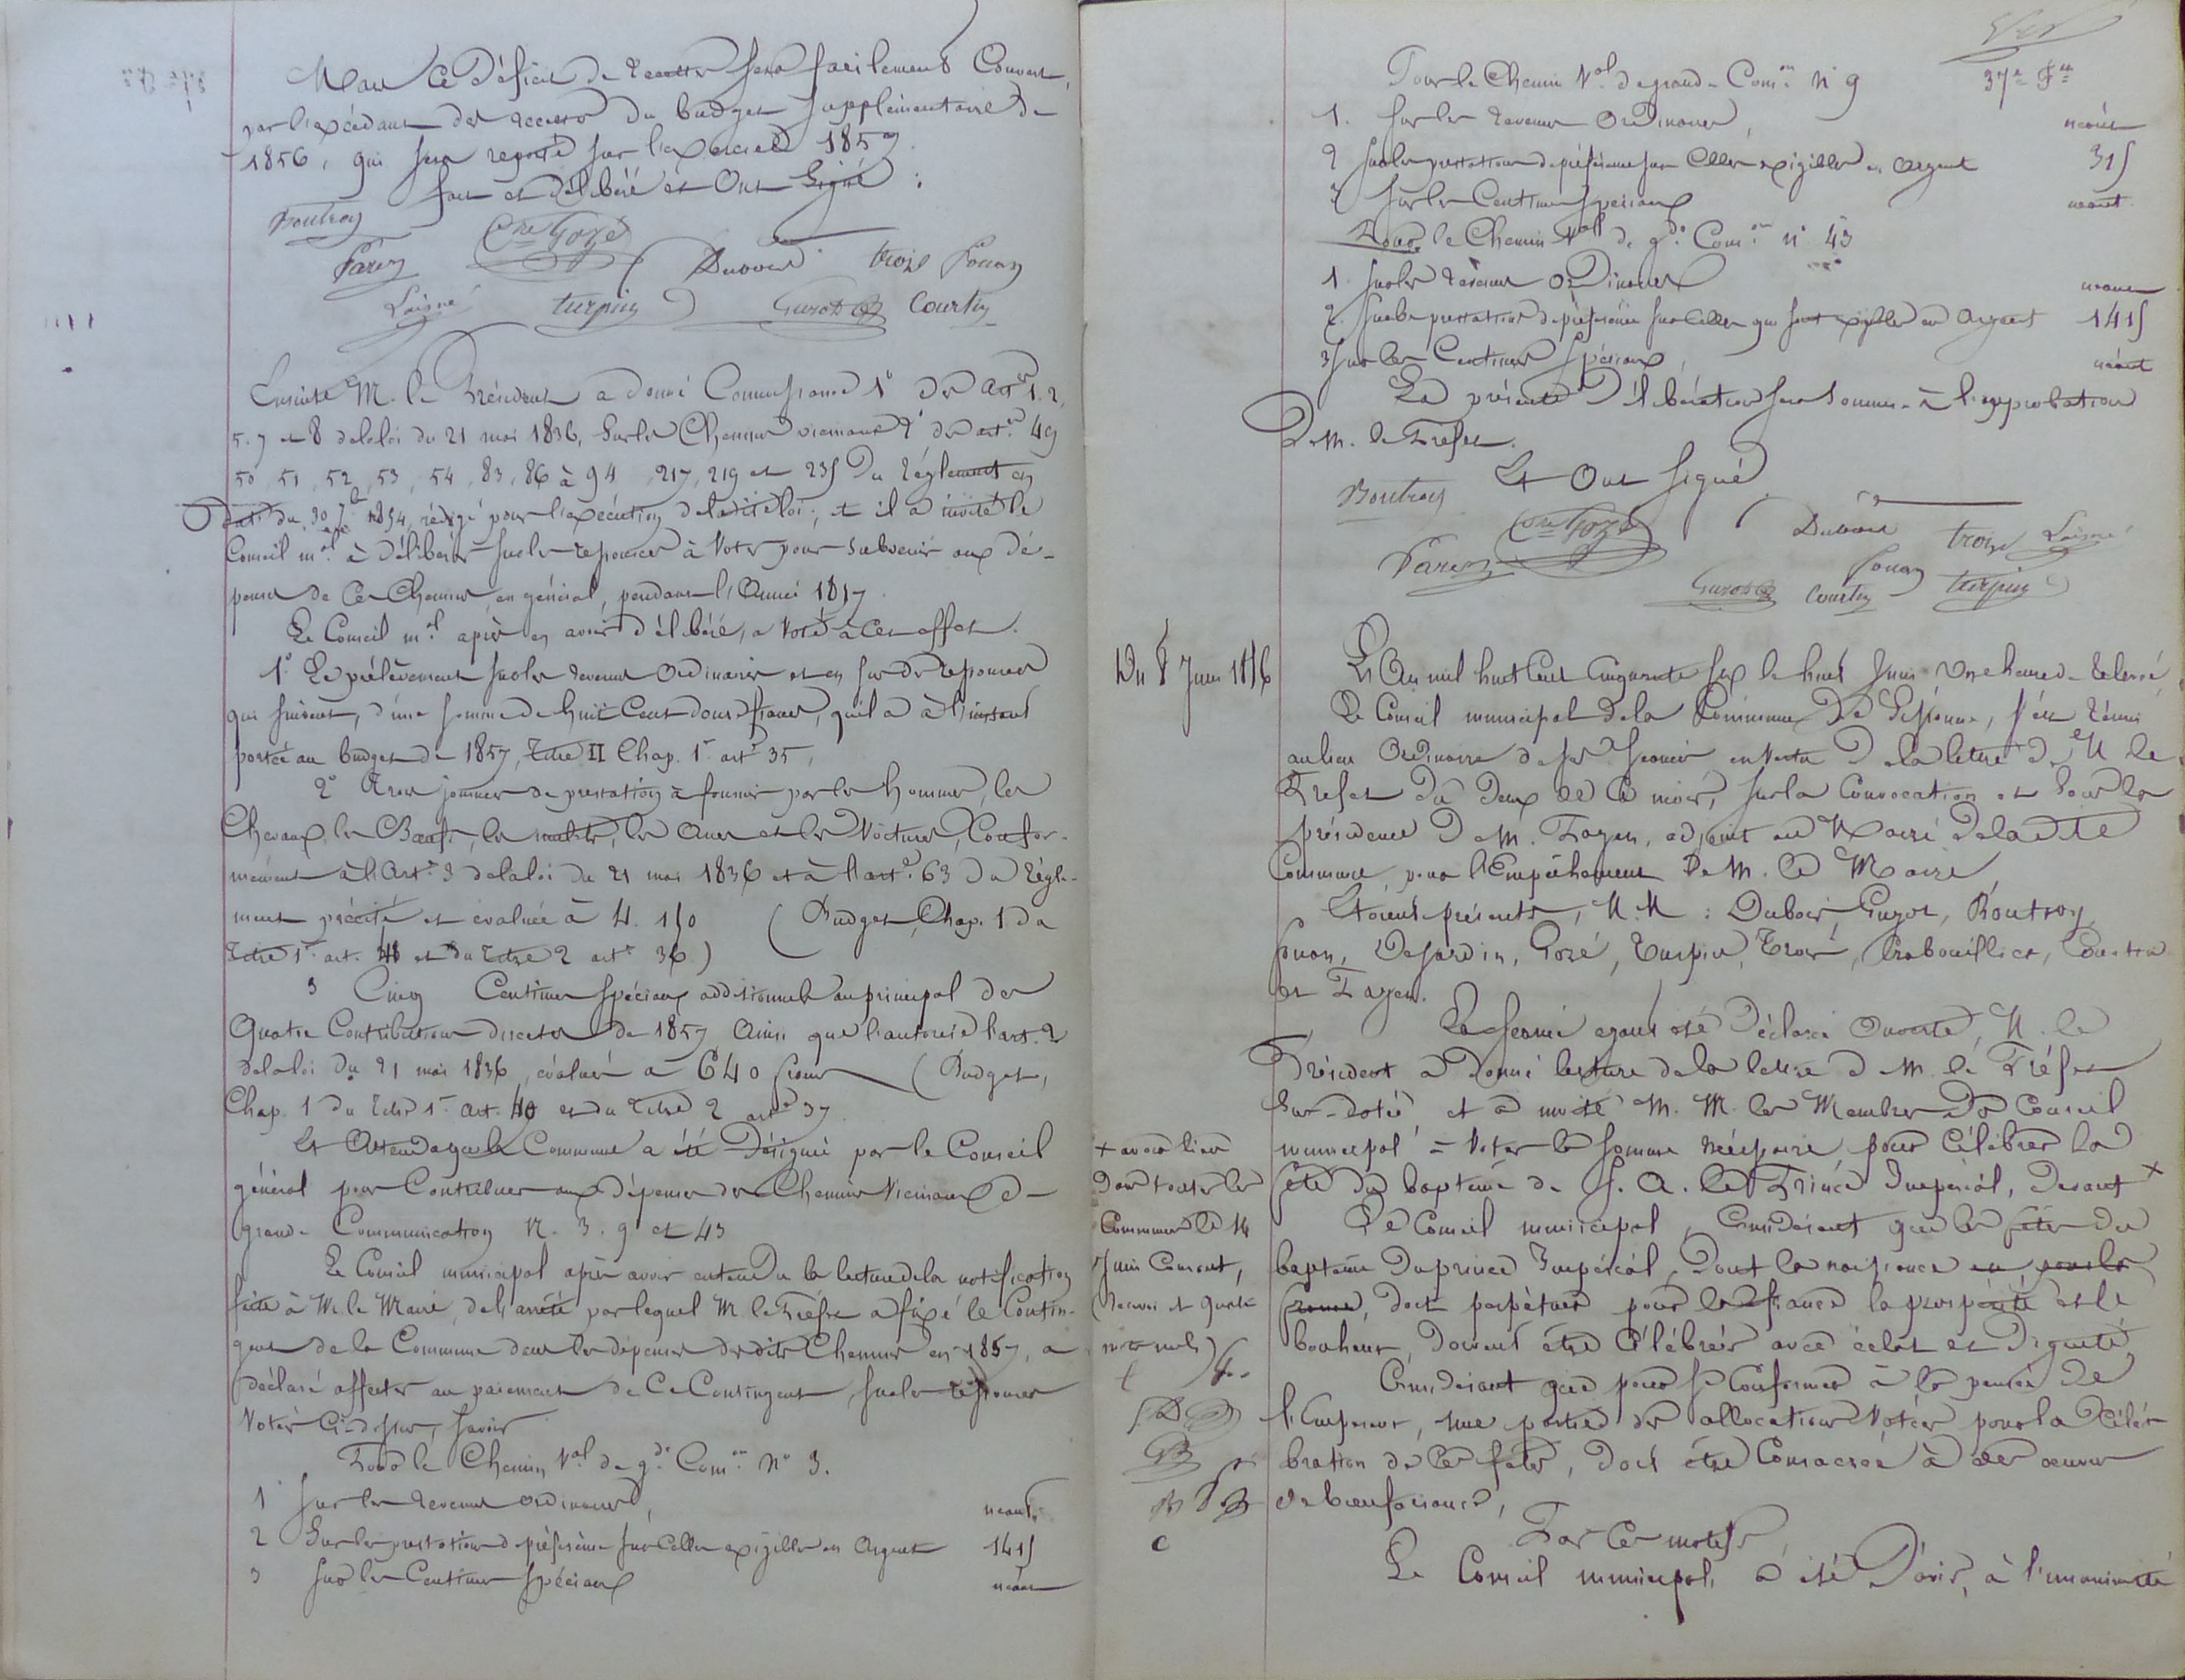 Mais ce déficit de recettes sera facilement couvert,
par l'excédant des recettes du budget supplémentaire de
1856, qui sera reporté sur l'exercice 1857.
fait et délibéré et ont signé :
Boutroy
Cre Gozé
Farez
Dubois
troisé
Souan
Loisné
turpin
Guyot
Courtin
Ensuite M. le Président a donné connaissance 1° des artes 1. 2,
5. 7 et 8 de la loi du 21 mai 1836, sur les Chemins vicinaux 2° des artes 49
50, 51, 52, 53, 54, 83, 86 à 94, 217, 219 et 235 du Réglement en
date du 30 7bre 1854, rédigé pour l'exécution de la dite loi; et il a invité le
Conseil mal à délibérer sur les ressources à voter pour subvenir aux dé-
penses de ces Chemins, en général, pendant l'année 1857.
Le Conseil mal après en avoir délibéré, a voté à cet effet.
1° Le prélèvement sur les revenus ordinaires et en sus des ressources
qui suivent, d'une somme de huit cent douze francs, qu'il a à l'instant
portée au budget de 1857, titre II Chap. 1er art. 35,
2° Trois journées de prestation à fournir par les hommes, les
Chevaux, les Bœufs, les mulets, les ânes et les voitures, confor-
mément à l'art. 3 de la loi du 21 mai 1836 et à l'art. 63 du Régle-
ment précité et évaluée à 4. 150 (Budget, Chap. 1 du
titre 1er art. 48 et du titre 2 art. 36)
3 Cinq Centimes spéciaux additionnels au principal des
Quatre Contributions directes de 1857 ainsi que l'autorise l'art. 2
de la loi du 21 mai 1836, évalués à 640 francs (Budget,
Chap. 1 du titre 1er art. 40 et du titre 2 art. 37
Et attendu que la Commune a été désignée par le Conseil
général pour contribuer aux dépenses des Chemins vicinaux de
grande Communication N. 3. 9 et 43
Le Conseil municipal après avoir entendu la lecture de la notification
faite à M. le Maire, de l'arrêté par lequel M. le Préfet a fixé le contin-
gent de la Commune dans les dépenses desdits Chemins en 1857, a
déclaré affecter au paiement de ce contingent, sur les ressources
votées ci-dessus, savoir
Pour le Chemin Val de gde Comon N° 3.
1° sur les revenus ordinaires, néant.
2 Sur les prestations de préférence sur celles exigibles en argent 1415
3 sur les Centimes spéciaux néant
37e Fet
Pour le Chemin Val de grande Comon N° 9
1. Sur les revenus ordinaires, néant
2 Sur les prestations de préférence sur celles exigibles en argent 315
3 Sur les Centimes spéciaux néant
Pour le Chemin Val de gde Comon n° 43
1. Sur les revenus ordinaires néant
2. Sur les prestations de préférence sur celles qui sont exigibles en argent 1415
3 Sur les Centimes spéciaux, néant
La présente délibération sera soumise à l'approbation
de M. le Préfet.
Et ont signé
Boutroy
Cre Gozé
Dubois
troisé
Loisné
Farez
Souan
Guyot
Courtin
turpin
Du 8 Juin 1856
L'An mil huit cent cinquante six le huit Juin une heure de relevé
Le Conseil municipal de la Commune de , s'est réuni
au lieu ordinaire de ses séances en vertu de la lettre de M le
Préfet du deux de ce mois, sur la convocation et sous la
présidence de M. Fayen, adjoint au Maire de la dite
Commune, pour l'empêchement de M. le Maire
Etaient présents, M.M : Dubois, Guyot, Boutroy,
Souan, Desjardin, Gozé, Turpin, Troisé, , Courtin
et Fayen.
La séance ayant été déclarée ouverte, M. le
Président a donné lecture de la lettre de M. le Préfet
sus-datée et a invité M.M. les Membres du Conseil
municipal à voter la somme nécessaire pour célébrer la
fête du baptême de S. A. le Prince Impérial, devant +
+ avoir lieu
dans toutes les
Communes le 14
Juin Courant,
(Renvoi et quatre
mots nuls)
Le Conseil municipal, considérant que les fêtes du
baptême du prince Impérial, dont la naissance
, doit perpétuer pour la france la prospérité et le
bonheur, doivent être célébrées avec éclat et dignité,
Considérant que pour se conformer à la pensée de
l'Empereur, une partie des allocations votées pour la célé-
bration de ces fêtes, doit être consacrée à des œuvres
de bienfaisance,
Par ces motifs,
Le Conseil municipal, a été d'avis, à l'unanimité